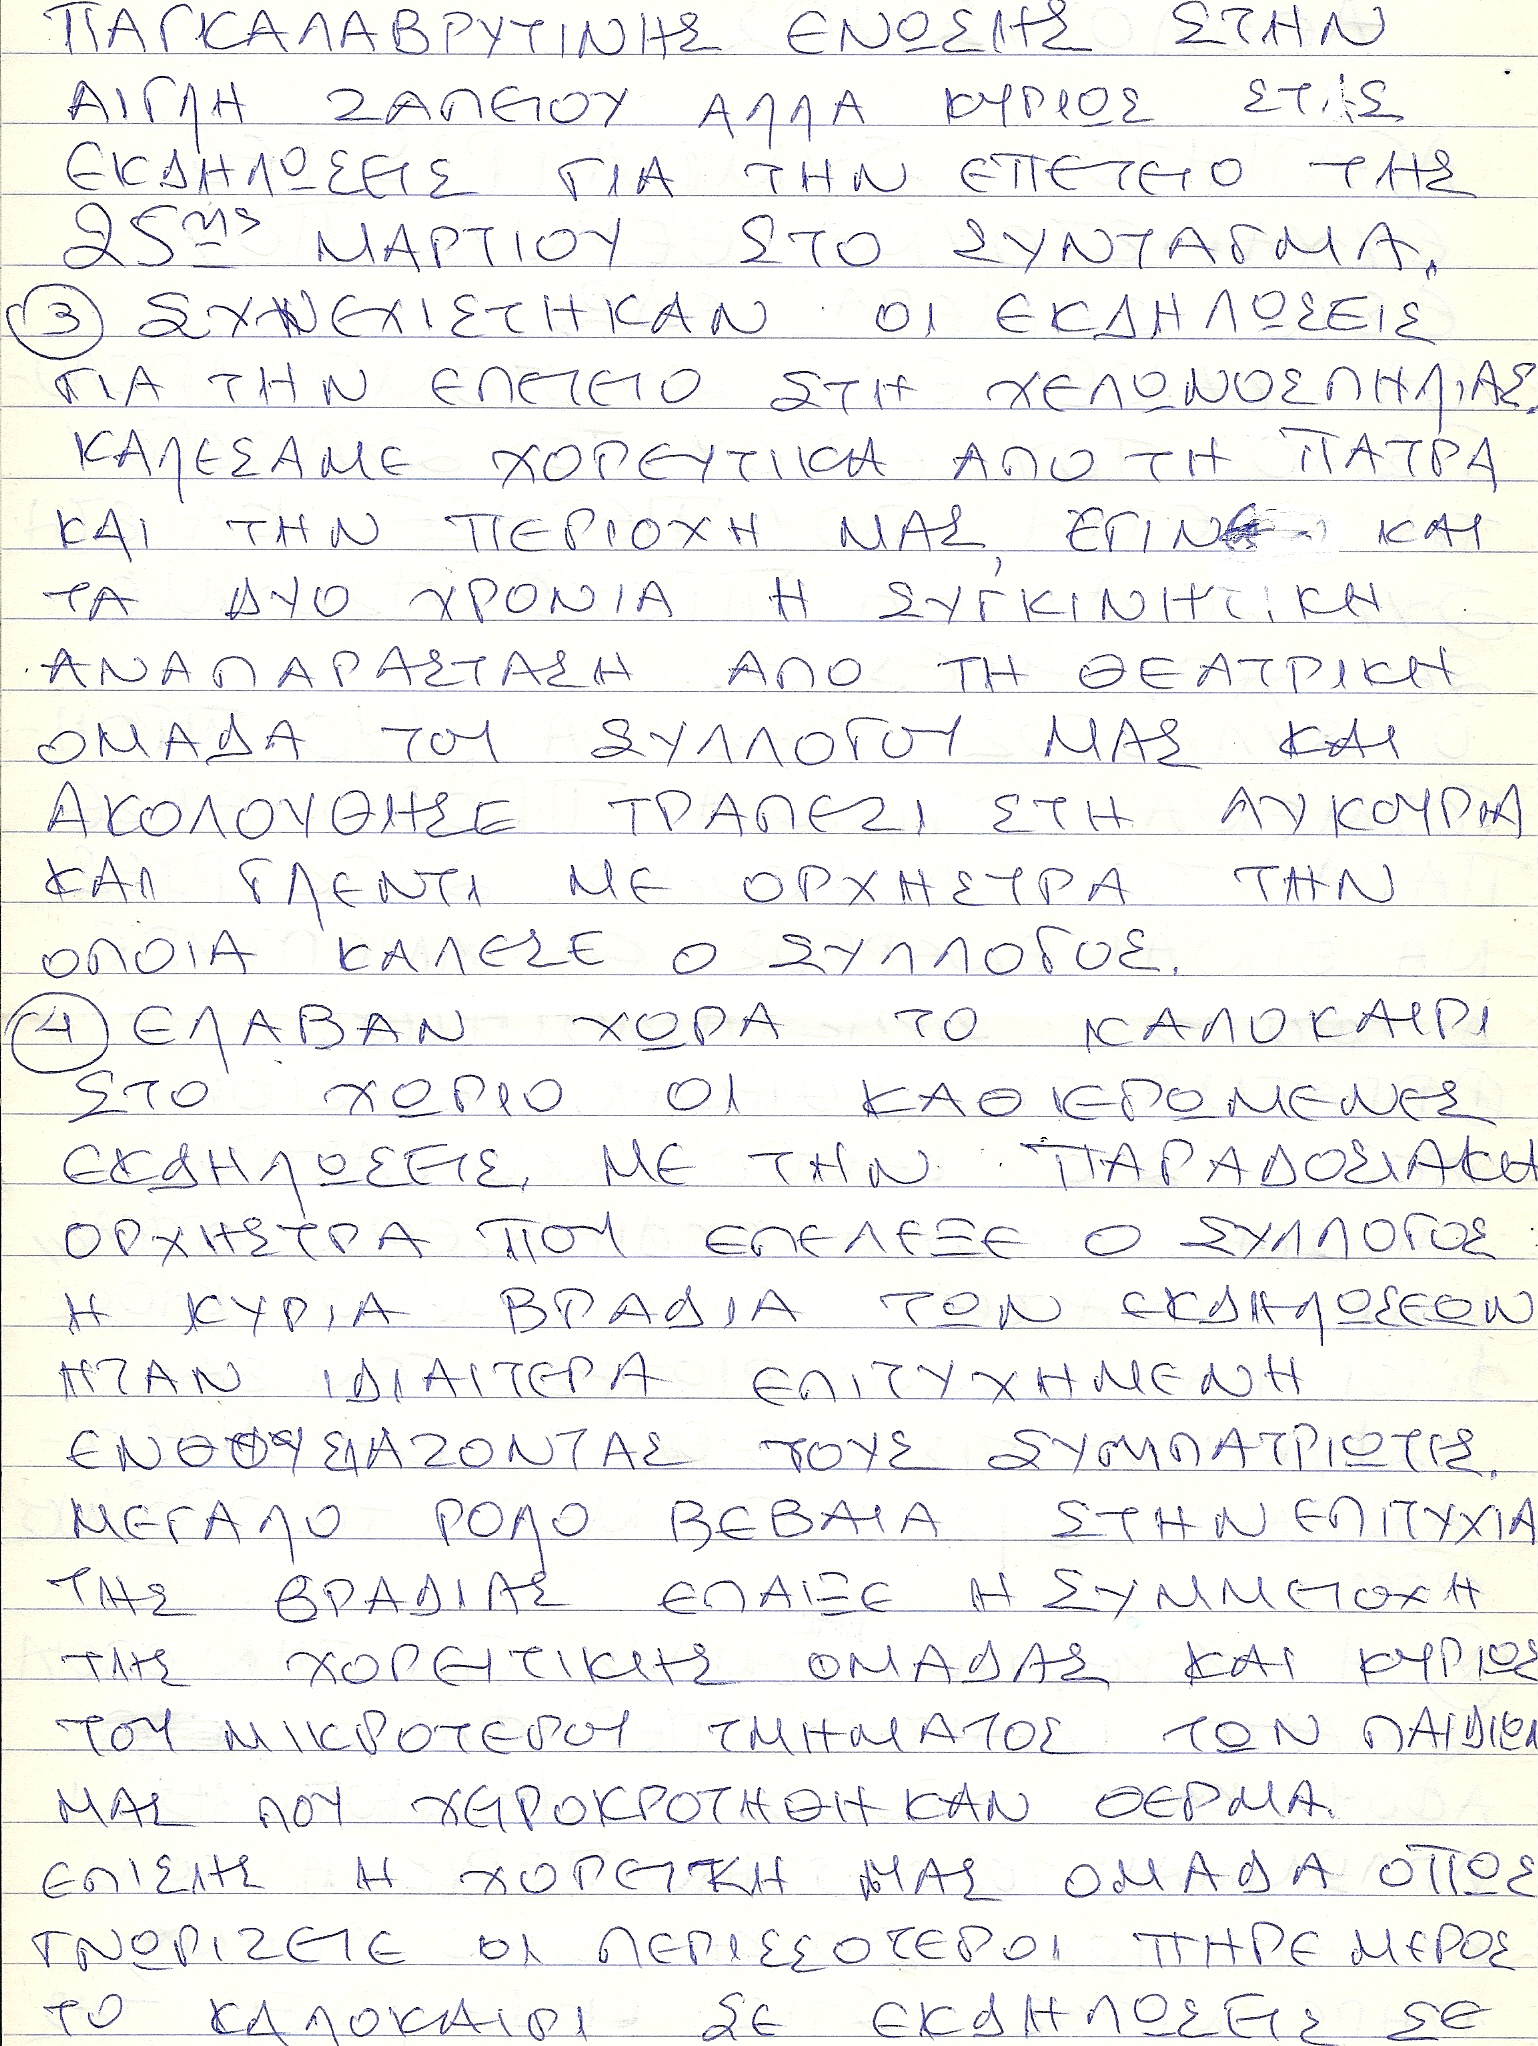 ΠΑΓΚΑΛΑΒΡΥΤΙΝΗΣ ΕΝΩΣΗΣ ΣΤΗΝ
ΑΙΓΛΗ ΖΑΠΕΙΟΥ ΑΛΛΑ ΚΥΡΙΩΣ ΣΤΙΣ
ΕΚΔΗΛΩΣΕΙΣ ΓΙΑ ΤΗΝ ΕΠΕΤΕΙΟ ΤΗΣ
25ης ΜΑΡΤΙΟΥ ΣΤΟ ΣΥΝΤΑΓΜΑ.
③ ΣΥΝΕΧΙΣΤΗΚΑΝ ΟΙ ΕΚΔΗΛΩΣΕΙΣ
ΓΙΑ ΤΗΝ ΕΠΕΤΕΙΟ ΣΤΗ ΧΕΛΩΝΟΣΠΗΛΙΑΣ.
ΚΑΛΕΣΑΜΕ ΧΟΡΕΥΤΙΚΑ ΑΠΟ ΤΗ ΠΑΤΡΑ
ΚΑΙ ΤΗΝ ΠΕΡΙΟΧΗ ΜΑΣ, ΕΓΙΝΕ ΚΑΙ
ΤΑ ΔΥΟ ΧΡΟΝΙΑ Η ΣΥΓΚΙΝΗΤΙΚΗ
ΑΝΑΠΑΡΑΣΤΑΣΗ ΑΠΟ ΤΗ ΘΕΑΤΡΙΚΗ
ΟΜΑΔΑ ΤΟΥ ΣΥΛΛΟΓΟΥ ΜΑΣ ΚΑΙ
ΑΚΟΛΟΥΘΗΣΕ ΤΡΑΠΕΖΙ ΣΤΗ ΛΥΚΟΥΡΙΑ
ΚΑΙ ΓΛΕΝΤΙ ΜΕ ΟΡΧΗΣΤΡΑ ΤΗΝ
ΟΠΟΙΑ ΚΑΛΕΣΕ Ο ΣΥΛΛΟΓΟΣ.
④ ΕΛΑΒΑΝ ΧΩΡΑ ΤΟ ΚΑΛΟΚΑΙΡΙ
ΣΤΟ ΧΩΡΙΟ ΟΙ ΚΑΘΙΕΡΩΜΕΝΕΣ
ΕΚΔΗΛΩΣΕΙΣ, ΜΕ ΤΗΝ ΠΑΡΑΔΟΣΙΑΚΗ
ΟΡΧΗΣΤΡΑ ΠΟΥ ΕΠΕΛΕΞΕ Ο ΣΥΛΛΟΓΟΣ
Η ΚΥΡΙΑ ΒΡΑΔΙΑ ΤΩΝ ΕΚΔΗΛΩΣΕΩΝ
ΗΤΑΝ ΙΔΙΑΙΤΕΡΑ ΕΠΙΤΥΧΗΜΕΝΗ
ΕΝΘΟΥΣΙΑΖΟΝΤΑΣ ΤΟΥΣ ΣΥΜΠΑΤΡΙΩΤΕΣ.
ΜΕΓΑΛΟ ΡΟΛΟ ΒΕΒΑΙΑ ΣΤΗΝ ΕΠΙΤΥΧΙΑ
ΤΗΣ ΒΡΑΔΙΑΣ ΕΠΑΙΞΕ Η ΣΥΜΜΕΤΟΧΗ
ΤΗΣ ΧΟΡΕΥΤΙΚΗΣ ΟΜΑΔΑΣ ΚΑΙ ΚΥΡΙΩΣ
ΤΟΥ ΜΙΚΡΟΤΕΡΟΥ ΤΜΗΜΑΤΟΣ ΤΩΝ ΠΑΙΔΙΩΝ
ΜΑΣ ΠΟΥ ΧΕΙΡΟΚΡΟΤΗΘΗΚΑΝ ΘΕΡΜΑ.
ΕΠΙΣΗΣ Η ΧΟΡΕΥΤΙΚΗ ΜΑΣ ΟΜΑΔΑ ΟΠΩΣ
ΓΝΩΡΙΖΕΤΕ ΟΙ ΠΕΡΙΣΣΟΤΕΡΟΙ ΠΗΡΕ ΜΕΡΟΣ
ΤΟ ΚΑΛΟΚΑΙΡΙ ΣΕ ΕΚΔΗΛΩΣΕΙΣ ΣΕ